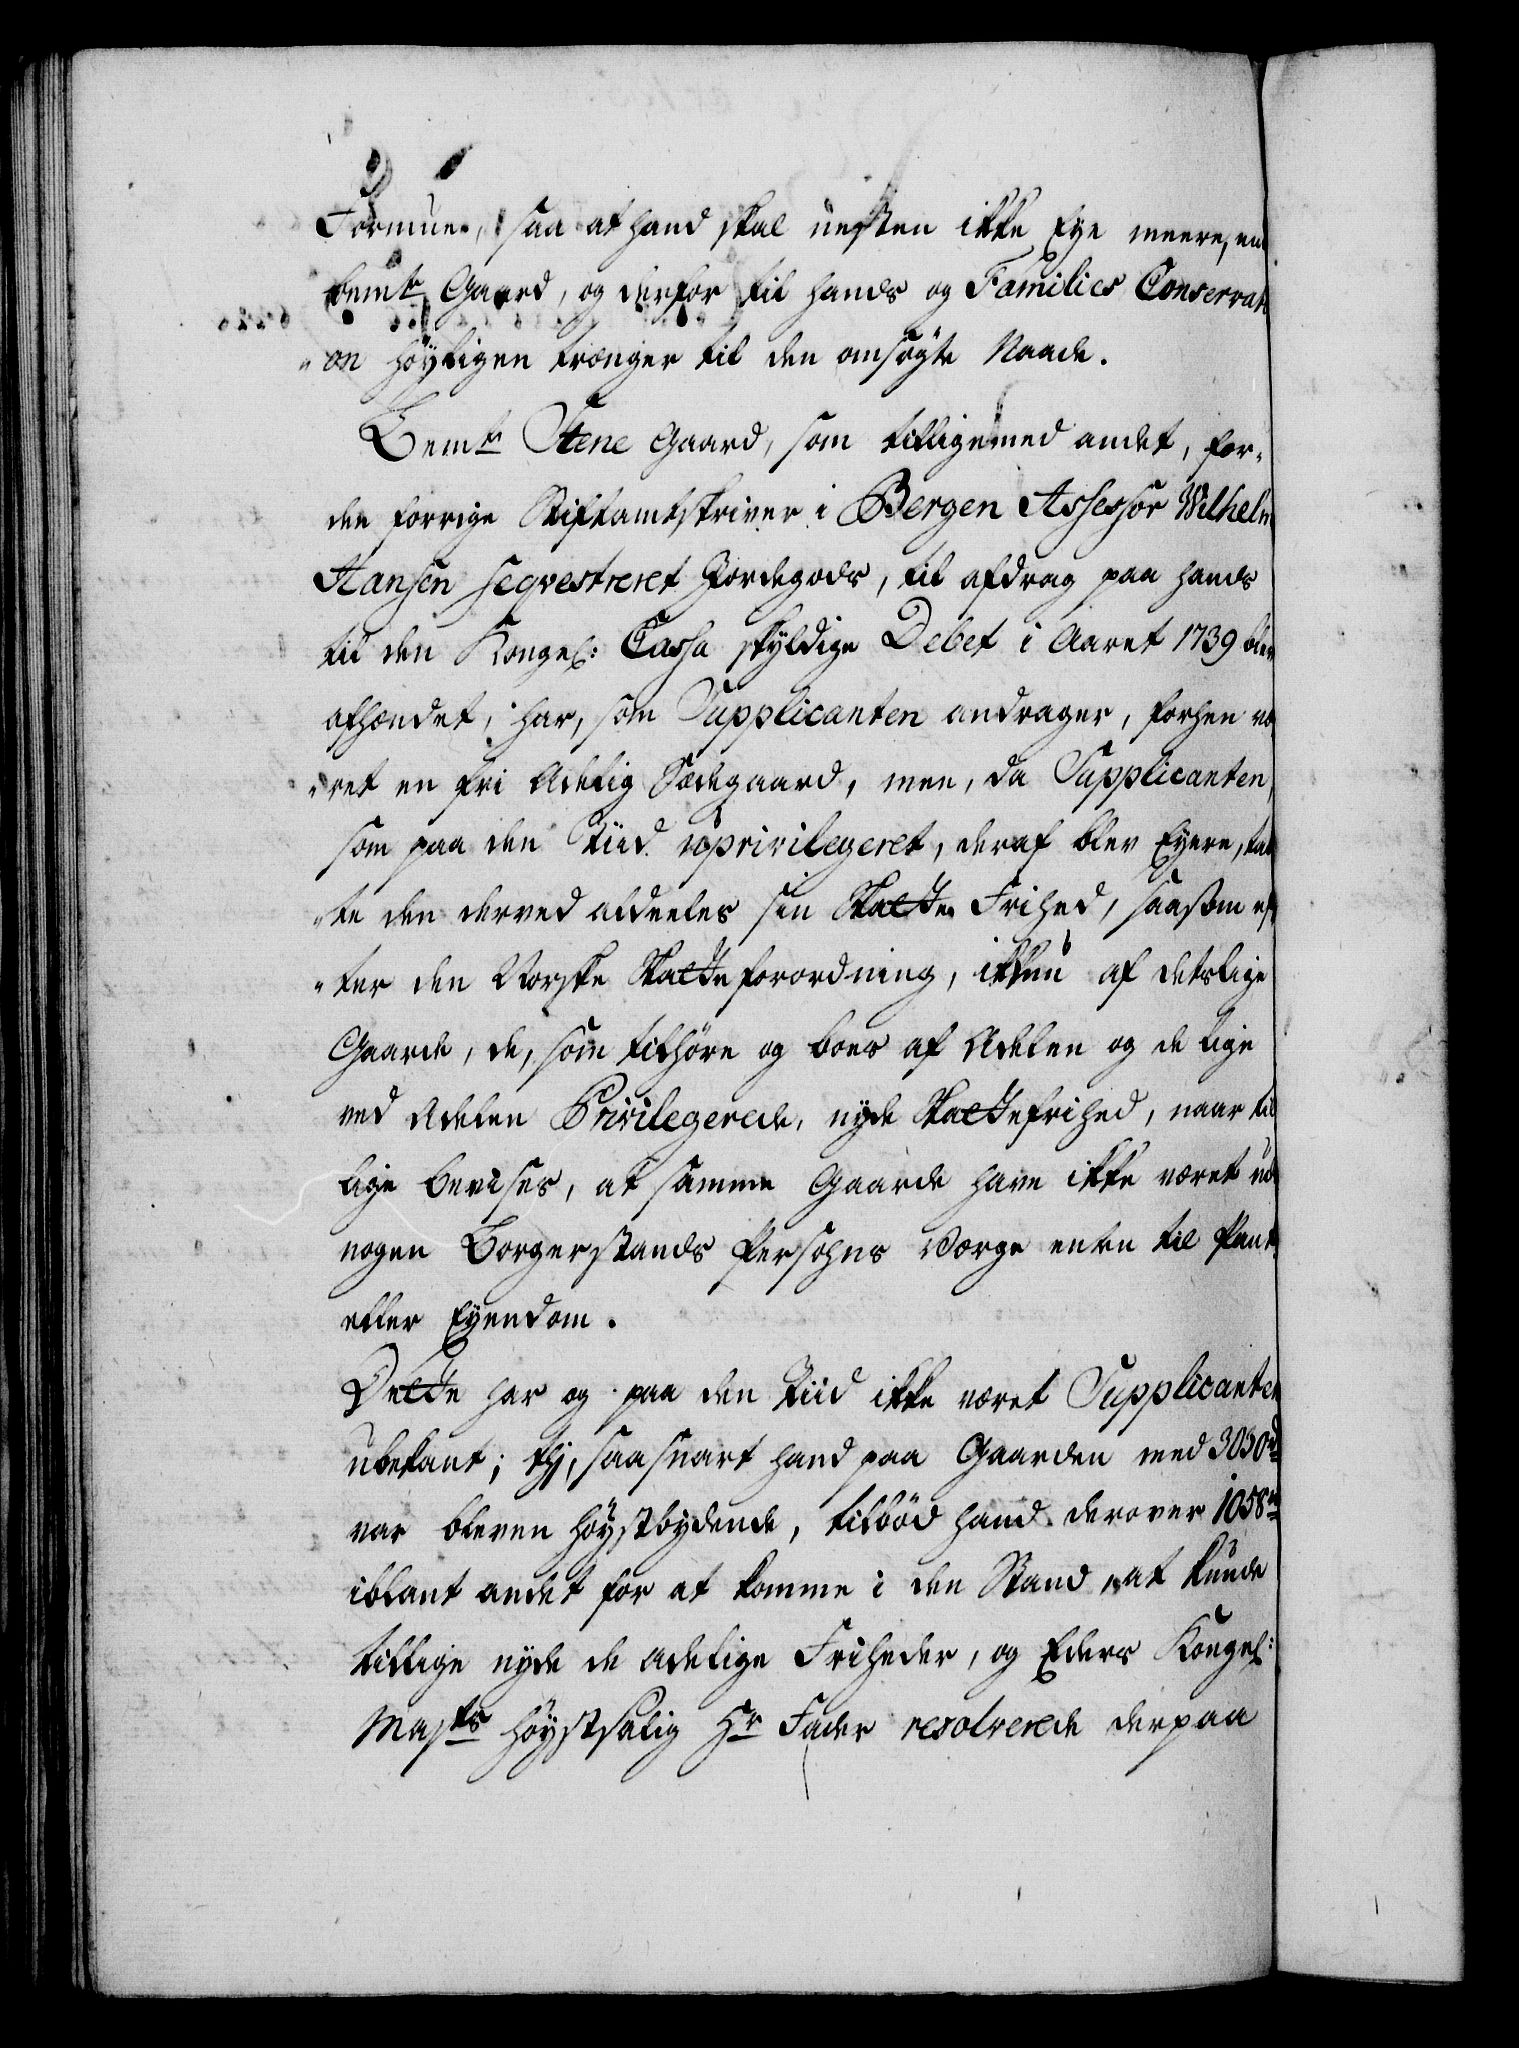 Formue, saa at hand skal nesten ikke Eye meere, end
bemte Gaard, og derfor til hands og Families Conservati
"on höyligen trænger til den ansögte Naade.
Bemte Stene Gaard, som tilligemed andet, for-
den forrige Stiftamtskriver i Bergen Assessor Wilhelm
Hansen seqvestreret Jordegods, til afdrag paa hands
til den Kongel: Cassa skyldige Debet i Aaret 1739 blev
afhændet, har, som Supplicanten andrager, forhen væ
"ret en fri Adelig Sædegaard, men, da Supplicanten,
som paa den Tiid uprivilegeret, deraf blev Eyere, tab
"te den derved aldeeles sin Skatte Frihed, saasom ef
"ter den Norske Skatteforordning, ikkun af detslige
Gaarde, de, som tilhöre og boes af Adelen og de lige
ved Adelen Privilegerede, nyde Skattefrihed, naar til
lige bevises, at samme Gaarde have ikke været udi
nogen Borgerstands Persohns Værge enten til Pant
eller Eyendom.
Dette har og paa den Tiid ikke været Supplicanten
ubekant; thj, saasnart hand paa Gaarden med 3030 rd
var bleven höystbydende, tilböd hand derover 1058 rd
iblant andet for at komme i den Stand, at kunde
tillige nyde de adelige Friheder, og Eders Kongel:
Mayts höystsalig Hr Fader resolverede derpaa